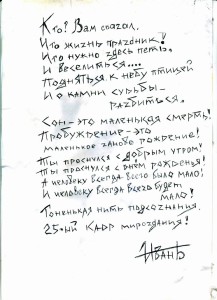 Кто? Вам сказал,
Что жизнь праздник!
Что нужно здесь петь,
И веселиться....
Подняться к небу птицей
И о камни судьбы –
разбиться.
Сон – это маленькая смерть!
Пробужденье – это
маленькое заново рождение!
Ты проснулся с добрым утром!
Ты проснулся с днём рожденья!
А человеку всегда всего было мало!
И человеку всегда всего будет
мало!
Тоненькая нить подсознания.
25-ый кадр мироздания!
Иванъ